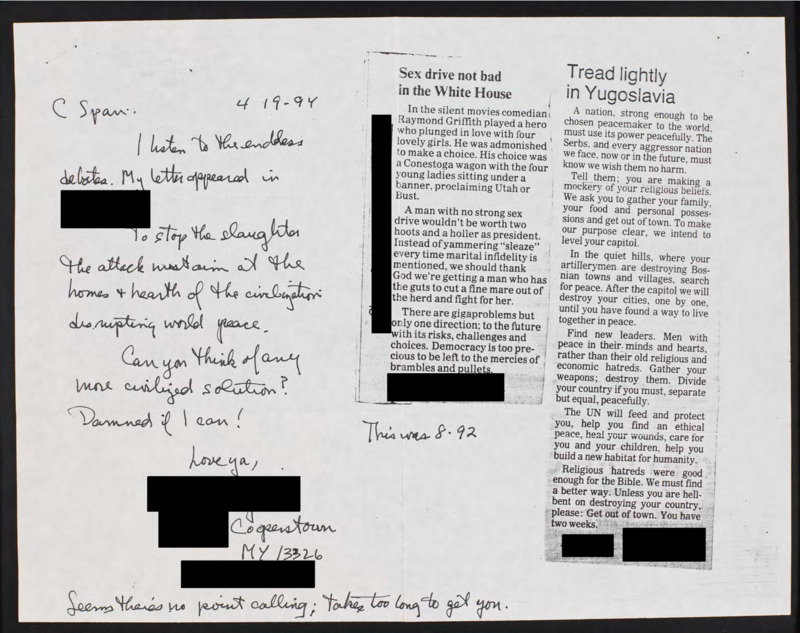 C Span. 4 19-94
I listen to the endless
debates. My letter appeared in
To stop the slaughter
the attack must aim at the
homes & hearth of the civilization
disrupting world peace.
Can you think of any
more civilized solution?
Damned if I can!
Love ya,
Cooperstown
NY 13326
Seems there's no point calling; takes too long to get you.
Sex drive not bad
in the White House
In the silent movies comedian
Raymond Griffith played a hero
who plunged in love with four
lovely girls. He was admonished
to make a choice. His choice was
a Conestoga wagon with the four
young ladies sitting under a
banner, proclaiming Utah or
Bust.
A man with no strong sex
drive wouldn't be worth two
hoots and a holler as president.
Instead of yammering "sleaze"
every time marital infidelity is
mentioned, we should thank
God we're getting a man who has
the guts to cut a fine mare out of
the herd and fight for her.
There are gigaproblems but
only one direction; to the future
with its risks, challenges and
choices. Democracy is too pre-
cious to be left to the mercies of
brambles and pullets.
This was 8-92
Tread lightly
in Yugoslavia
A nation, strong enough to be
chosen peacemaker to the world,
must use its power peacefully. The
Serbs, and every aggressor nation
we face, now or in the future, must
know we wish them no harm.
Tell them; you are making a
mockery of your religious beliefs.
We ask you to gather your family,
your food and personal posses-
sions and get out of town. To make
our purpose clear, we intend to
level your capitol.
In the quiet hills, where your
artillerymen are destroying Bos-
nian towns and villages, search
for peace. After the capitol we will
destroy your cities, one by one,
until you have found a way to live
together in peace.
Find new leaders. Men with
peace in their minds and hearts,
rather than their old religious and
economic hatreds. Gather your
weapons; destroy them. Divide
your country if you must, separate
but equal, peacefully.
The UN will feed and protect
you, help you find an ethical
peace, heal your wounds, care for
you and your children, help you
build a new habitat for humanity.
Religious hatreds were good
enough for the Bible. We must find
a better way. Unless you are hell-
bent on destroying your country,
please: Get out of town. You have
two weeks.